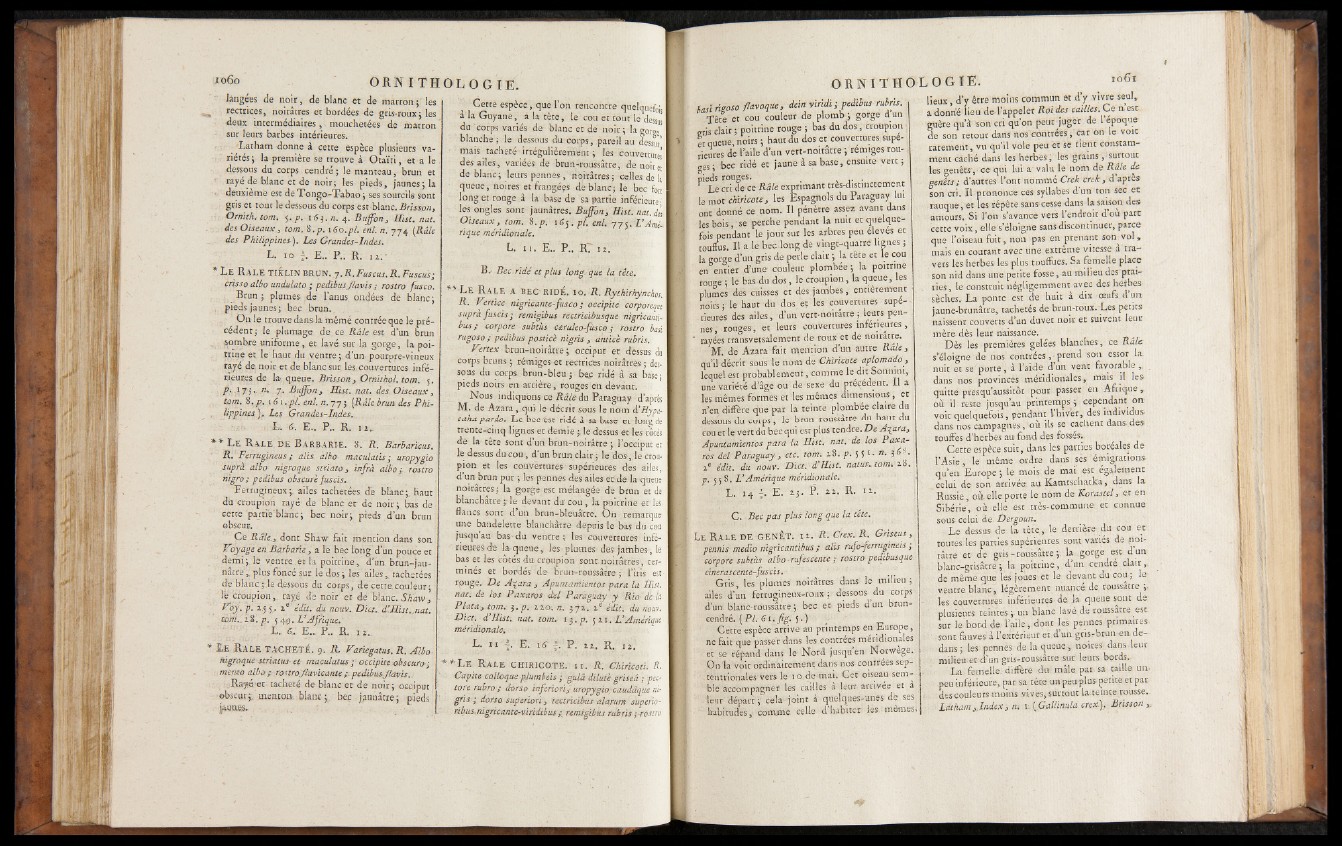 1060 ORNITHOLOGIE.
langées de noir, de blanc et de marron; les
rectrices, noirâtres et bordées de gris-roux; les
deux intermédiaires, mouchetées de marron
sur leurs barbes intérieures.
Latham donne à cette espèce plusieurs va-
riétés; la première se trouve à Otaïti, et a le
dessous du corps cendré; le manteau, brun et
rayé de blanc et de noir; les pieds, jaunes; la
deuxième est de Tongo-Tabao; ses sourcils sont
gris et tout le dessous du corps est blanc. Brisson,
Ornith. tom. 5. p. 163. n. 4. Buffon, Hist. nat.
des Oiseaux, tom. 8. p. 160. pl. enl. n. 774 (Râle
des Philippines). Les Grandes-Indes.
L. 10 ½. E.. P.. R. 12.
* LE RALE TIKLIN BRUN. 7. R. Fuscus. R. Fuscus;
crisso albo undulato; pedibus flavis; rostro fusco.
Brun; plumes de l'anus ondées de blanc;
pieds jaunes; bec brun.
On le trouve dans la même contrée que le pré-
cédent; le plumage de ce Râle est d'un brun
sombre uniforme, et lavé sur la gorge, la poi-
trine et le haut du ventre; d'un pourpre-vineux
rayé de noir et de blanc sur les couvertures infé-
rieures de la queue. Brisson, Ornithol. tom. 5.
p. 173. n. 7. Buffon, Hist. nat. des Oiseaux,
tom. 8. p. 161. pl. enl. n. 773 (Râle brun des Phi-
lippines). Les Grandes-Indes.
L. 6. E.. P.. R. 12.
** LE RALE DE BARBARIE. 8. R. Barbaricus.
R. Ferrugineus; alis albo maculatis; uropygio
suprà albo nigroque striato, infrà albo; rostro
nigro; pedibus obscurè fuscis.
Ferrugineux; ailes tachetées de blanc; haut
du croupion rayé de blanc et de noir; bas de
cette partie blanc; bec noir; pieds d'un brun
obscur.
Ce Râle, dont Shaw fait mention dans son
Voyage en Barbarie, a le bec long d'un pouce et
demi; le ventre et la poitrine, d'un brun-jau-
nâtre, plus foncé sur le dos; les ailes, tachetées
de blanc; le dessous du corps, de cette couleur;
le croupion, rayé de noir et de blanc. Shaw,
Voy. p. 255. 2e édit. du nouv. Dict. d'Hist. nat.
tom. 28. p. 549. L'Afrique.
L. 6. E.. P.. R. 12.
* LE RALE TACHETÉ. 9. R. Variegatus. R. Albo
nigroque striatus et maculatus; occipite obscuro;
mento albo; rostro flavicante; pedibus flavis.
Rayé et tacheté de blanc et de noir; occiput
obscur; menton blanc; bec jaunâtre; pieds
jaunes.
Cette espèce, que l'on rencontre quelquefois
à la Guyane, a la tête, le cou et tout le dessus
du corps variés de blanc et de noir; la gorge,
blanche; le dessous du corps, pareil au dessus,
mais tacheté irrégulièrement; les couvertures
des ailes, variées de brun-roussâtre, de noir et
de blanc; leurs pennes, noirâtres; celles de la
queue, noires et frangées de blanc; le bec fort
long et rouge à la base de sa partie inférieure;
les ongles sont jaunâtres. Buffon, Hist. nat. des
Oiseaux, tom. 8. p. 165. pl. enl. 775. L'Amé-
rique méridionale.
L. 11. E.. P.. R. 12.
B. Bec ridé et plus long que la tête.
** LE RALE A BEC RIDÉ. 10. R. Rythirhynchos.
R. Vertice nigricante-fusco; occipite corporeque
suprà fuscis; remigibus rectricibusque nigricanti-
bus; corpore subtùs cæruleo-fusco; rostro basi
rugoso; pedibus posticè nigris, anticè rubris.
Vertex brun-noirâtre; occiput et dessus du
corps bruns; rémiges et rectrices noirâtres; des-
sous du corps brun-bleu; bec ridé à sa base;
pieds noirs en arrière, rouges en devant.
Nous indiquons ce Râle du Paraguay d'après
M. de Azara, qui le décrit sous le nom d'Hypa-
caha pardo. Le bec est ridé à sa base et long de
trente-cinq lignes et demie; le dessus et les côtés
de la tête sont d'un brun-noirâtre; l'occiput et
le dessus du cou, d'un brun clair; le dos, le crou-
pion et les couvertures supérieures des ailes,
d'un brun pur; les pennes des ailes et de la queue
noirâtres; la gorge est mélangée de brun et de
blanchâtre; le devant du cou, la poitrine et les
flancs sont d'un brun-bleuâtre. On remarque
une bandelette blanchâtre depuis le bas du cou
jusqu'au bas du ventre; les couvertures infé-
rieures de la queue, les plumes des jambes, le
bas et les côtés du croupion sont noirâtres, ter-
minés et bordés de brun-roussâtre; l'iris est
rouge. De Azara, Apuntamientos para la Hist.
nat. de los Paxaros del Paraguay y Rio de la
Plata, tom. 3. p. 220. n. 372. 2e édit. du nouv.
Dict. d'Hist. nat. tom. 13. p. 521. L'Amérique
méridionale.
L. 11 ¾. E. 16 ½. P. 22. R. 12.
** LE RALE CHIRICOTE. 11. R. Chiricoti. R.
Capite colloque plumbeis; gulâ dilutè griseâ; pec-
tore rubro; dorso inferiori, uropygio caudâque ni-
gris; dorso superiori, tectricibus alarum superio-
ribus nigricante-viridibus; remigibus rubris; rostro
ORNITHOLOGIE. 1061
basi rigoso flavoque, dein viridi; pedibus rubris.
Tête et cou couleur de plomb; gorge d'un
gris clair; poitrine rouge; bas du dos, croupion
et queue, noirs; haut du dos et couvertures supé-
rieures de l'aile d'un vert-noirâtre; rémiges rou-
ges; bec ridé et jaune à sa base, ensuite vert;
pieds rouges.
Le cri de ce Râle exprimant très-distinctement
le mot chiricote, les Espagnols du Paraguay lui
ont donné ce nom. Il pénètre assez avant dans
les bois, se perche pendant la nuit et quelque-
fois pendant le jour sur les arbres peu élevés et
touffus. Il a le bec long de vingt-quatre lignes;
la gorge d'un gris de perle clair; la tête et le cou
en entier d'une couleur plombée; la poitrine
rouge; le bas du dos, le croupion, la queue, les
plumes des cuisses et des jambes, entièrement
noirs; le haut du dos et les couvertures supé-
rieures des ailes, d'un vert-noirâtre; leurs pen-
nes, rouges, et leurs couvertures inférieures,
rayées transversalement de roux et de noirâtre.
M. de Azara fait mention d'un autre Râle,
qu'il décrit sous le nom de Chiricote aplomado,
lequel est probablement, comme le dit Sonnini,
une variété d'âge ou de sexe du précédent. Il a
les mêmes formes et les mêmes dimensions, et
n'en diffère que par la teinte plombée claire du
dessous du corps, le brun roussâtre du haut du
cou et le vert du bec qui est plus tendre. De Azara,
Apuntamientos para la Hist. nat. de los Paxa-
ros del Paraguay, etc. tom. 28. p. 551. n. 368.
2e édit. du nouv. Dict. d'Hist. natur. tom. 28.
p. 558. L'Amérique méridionale.
L. 14 ½. E. 25. P. 22. R. 12.
C. Bec pas plus long que la tête.
LE RALE DE GENÊT. 12. R. Crex. R. Griseus,
pennis medio nigricantibus; alis rufo-ferrugineis;
corpore subtùs albo-rufescente; rostro pedibusque
cinerascente-fuscis.
Gris, les plumes noirâtres dans le milieu;
ailes d'un ferrugineux-roux; dessous du corps
d'un blanc-roussâtre; bec et pieds d'un brun-
cendré. (Pl. 61, fig. 5.)
Cette espèce arrive au printemps en Europe,
ne fait que passer dans les contrées méridionales
et se répand dans le Nord jusqu'en Norwège.
On la voit ordinairement dans nos contrées sep-
tentrionales vers le 10 de mai. Cet oiseau sem-
ble accompagner les cailles à leur arrivée et à
leur départ; cela joint à quelques-unes de ses
habitudes, comme celle d'habiter les mêmes
lieux, d'y être moins commun et d'y vivre seul,
a donné lieu de l'appeler Roi des cailles. Ce n'est
guère qu'à son cri qu'on peut juger de l'époque
de son retour dans nos contrées, car on le voit
rarement, vu qu'il vole peu et se tient constam-
ment caché dans les herbes, les grains, surtout
les genêts, ce qui lui a valu le nom de Râle de
genêts; d'autres l'ont nommé Crek crek, d'après
son cri. Il prononce ces syllabes d'un ton sec et
rauque, et les répète sans cesse dans la saison des
amours. Si l'on s'avance vers l'endroit d'où part
cette voix, elle s'éloigne sans discontinuer, parce
que l'oiseau fuit, non pas en prenant son vol,
mais en courant avec une extrême vitesse à tra-
vers les herbes les plus touffues. Sa femelle place
son nid dans une petite fosse, au milieu des prai-
ries, le construit négligemment avec des herbes
sèches. La ponte est de huit à dix œufs d'un
jaune-brunâtre, tachetés de brun-roux. Les petits
naissent couverts d'un duvet noir et suivent leur
mère dès leur naissance.
Dès les premières gelées blanches, ce Râle
s'éloigne de nos contrées, prend son essor la
nuit et se porte, à l'aide d'un vent favorable,
dans nos provinces méridionales, mais il les
quitte presqu'aussitôt pour passer en Afrique,
où il reste jusqu'au printemps; cependant on
voit quelquefois, pendant l'hiver, des individus
dans nos campagnes, où ils se cachent dans des
touffes d'herbes au fond des fossés.
Cette espèce suit, dans les parties boréales de
l'Asie, le même ordre dans ses émigrations
qu'en Europe; le mois de mai est également
celui de son arrivée au Kamtschatka, dans la
Russie, où elle porte le nom de Korastel, et en
Sibérie, où elle est très-commune et connue
sous celui de Dergoun.
Le dessus de la tête, le derrière du cou et
toutes les parties supérieures sont variés de noi-
râtre et de gris-roussâtre; la gorge est d'un
blanc-grisâtre; la poitrine, d'un cendré clair,
de même que les joues et le devant du cou; le
ventre blanc, légèrement nuancé de roussâtre;
les couvertures inférieures de la queue sont de
plusieurs teintes; un blanc lavé de roussâtre est
sur le bord de l'aile, dont les pennes primaires
sont fauves à l'extérieur et d'un gris-brun en de-
dans; les pennes de la queue, noires dans leur
milieu et d'un gris-roussâtre sur leurs bords.
La femelle diffère du mâle par sa taille un
peu inférieure, par sa tête un peu plus petite et par
des couleurs moins vives, surtout la teinte rousse.
Latham, Index, n. 1 (Gallinula crex). Brisson,